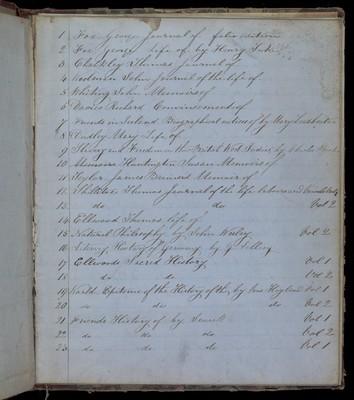 1 Fox George Journal of folio edition
2 Fox George life of by Henry Tuke
3 Chalkley Thomas Journal of
4 Woolman John Journal of the life of
5 Whiting John Memoirs of
6 Davies Richard Convincement of
7 Friends in Ireland Biographical notices of by Mary Leadbeater
8 Dudley Mary Life of
9 Slavery and Freedom in the British West Indies by Charles
10 Memoirs Huntington Susan Memoirs of
11 Taylor James Brainerd Memoir of
12 Thomas Journal of the life labours and
13 do do Vol 2
14 Ellwood Thomas life of
15 Natural Philosophy by John Wesley Vol 2
16 History of Germany by
17 Ellwoods Sacred History Vol 1
18 do do Vol 2
19 World Epitome of the History of the, by Hoyland Vol 1
20 do do do Vol 2
21 Friends History of by Sewell Vol 1
22 do do do Vol 2
23 do do do Vol 1